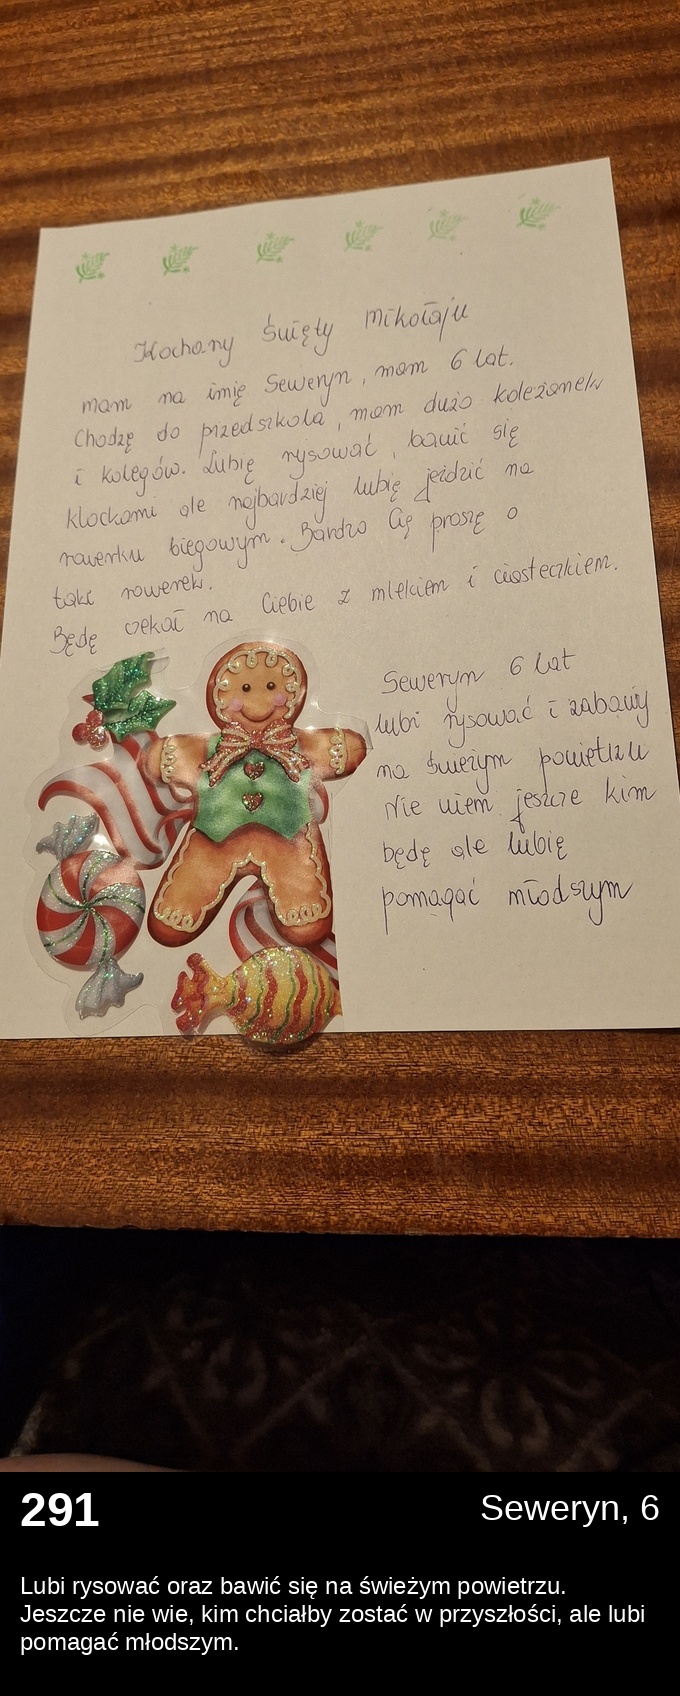 Kochany Święty Mikołaju
mam na imię Seweryn, mam 6 lat.
Chodzę do przedszkola, mam dużo koleżanek
i kolegów. Lubię rysować, bawić się
klockami ale najbardziej lubię jeździć na
rowerku biegowym. Bardzo Cię proszę o
taki rowerek.
Będę czekać na Ciebie z mlekiem i ciasteczkiem.
Seweryn 6 lat
lubi rysować i zabawy
na świeżym powietrzu
Nie wiem jeszcze kim
będę ale lubię
pomagać młodszym
291
Seweryn, 6
Lubi rysować oraz bawić się na świeżym powietrzu.
Jeszcze nie wie, kim chciałby zostać w przyszłości, ale lubi
pomagać młodszym.